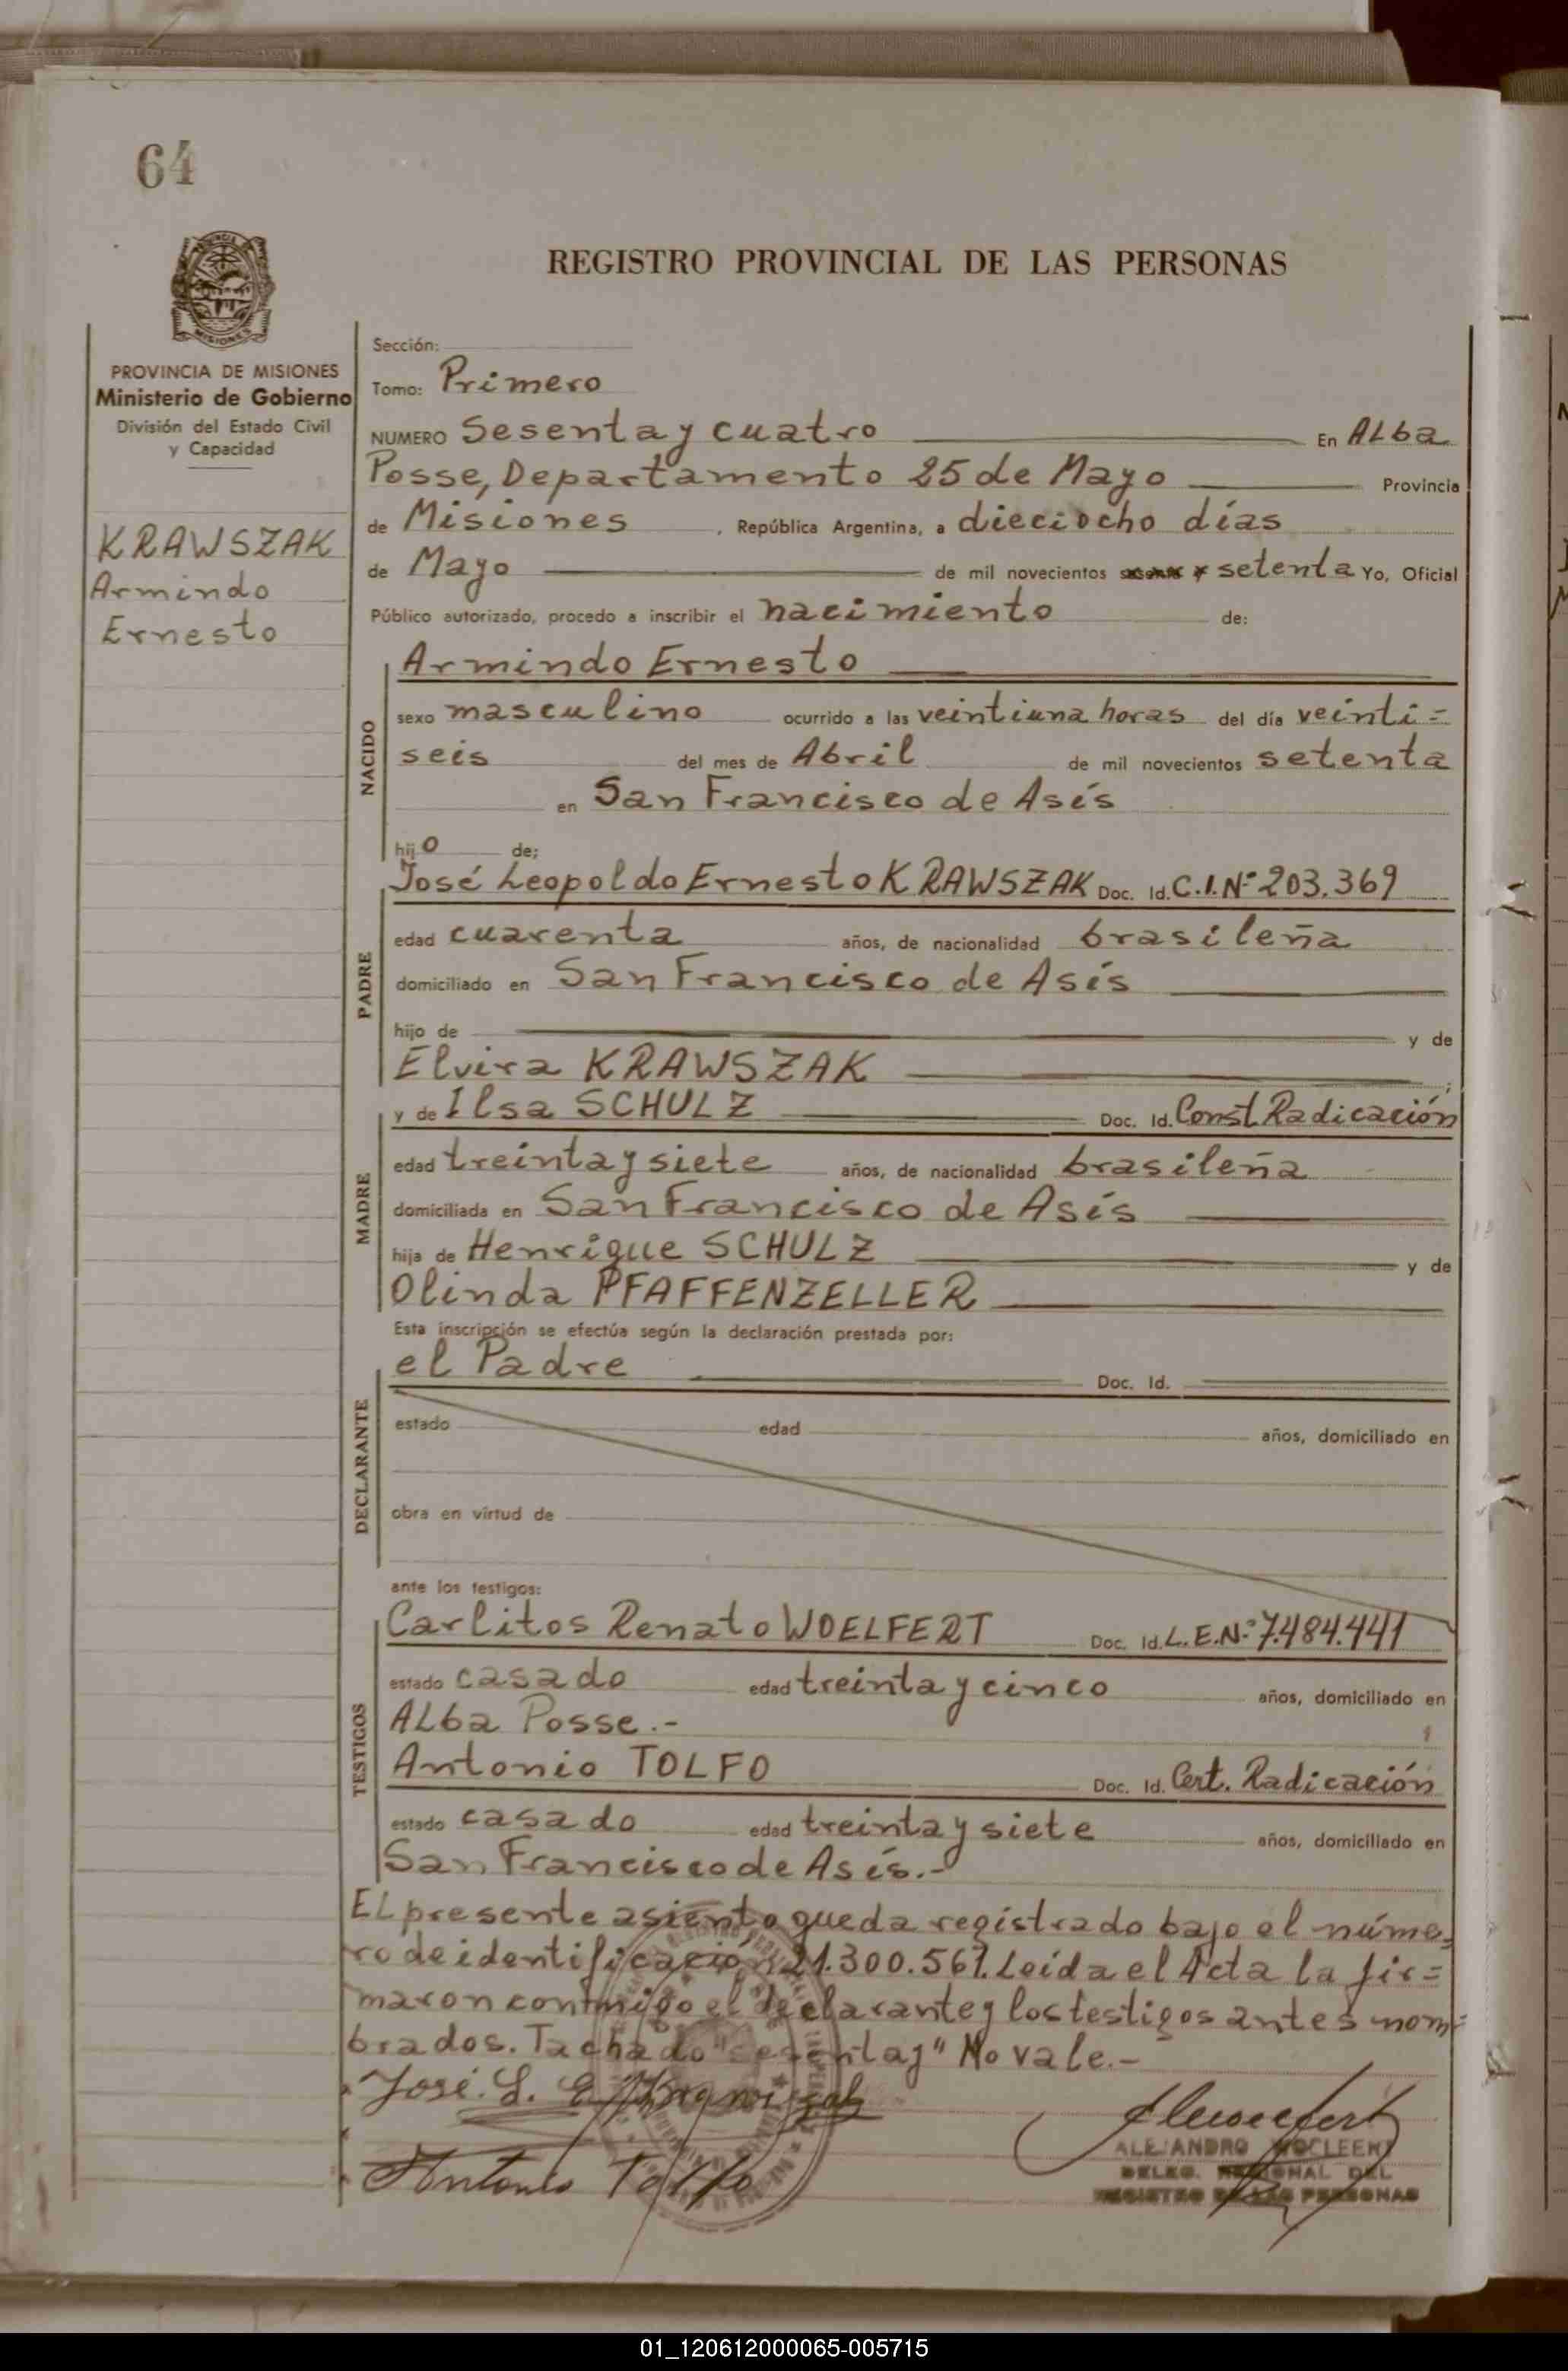 64
REGISTRO PROVINCIAL DE LAS PERSONAS
PROVINCIA DE MISIONES
Ministerio de Gobierno
División del Estado Civil
y Capacidad
KRAWSZAK
Armindo
Ernesto
Sección:
Tomo: Primero
NUMERO Sesenta y cuatro En ALba
Posse, Departamento 25 de Mayo Provincia
de Misiones , República Argentina, a dieciocho días
de Mayo de mil novecientos setenta Yo, Oficial
Público autorizado, procedo a inscribir el nacimiento de:
NACIDO
Armindo Ernesto
sexo masculino ocurrido a las veintiuna horas del día veinti=
seis del mes de Abril de mil novecientos setenta
en San Francisco de Asís
hijo de;
PADRE
José Leopoldo Ernesto KRAWSZAK Doc. Id. C.I.Nº 203.369
edad cuarenta años, de nacionalidad brasileña
domiciliado en San Francisco de Asís
hijo de y de
Elvira KRAWSZAK
MADRE
y de Ilsa SCHULZ Doc. Id. Const. Radicación
edad treinta y siete años, de nacionalidad brasileña
domiciliada en San Francisco de Asís
hija de Henrique SCHULZ y de
Olinda PFAFFENZELLER
Esta inscripción se efectúa según la declaración prestada por:
DECLARANTE
el Padre Doc. Id.
estado edad años, domiciliado en
obra en virtud de
ante los testigos:
TESTIGOS
Carlitos Renato WOELFERT Doc. Id. L.E.Nº 7.484.441
estado casado edad treinta y cinco años, domiciliado en
ALba Posse.-
Antonio TOLFO Doc. Id. Cert. Radicación
estado casado edad treinta y siete años, domiciliado en
San Francisco de Asís.-
EL presente asiento queda registrado bajo el núme=
ro de identificación 21.300.567. Leída el Acta la fir=
maron conmigo el declarante y los testigos antes nom=
brados. Tachado "sesenta y" No vale.-
José. L. E.
Antonio Tolfo
ALEJANDRO
DELEG. REGIONAL DEL
REGISTRO DE LAS PERSONAS
01_120612000065-005715